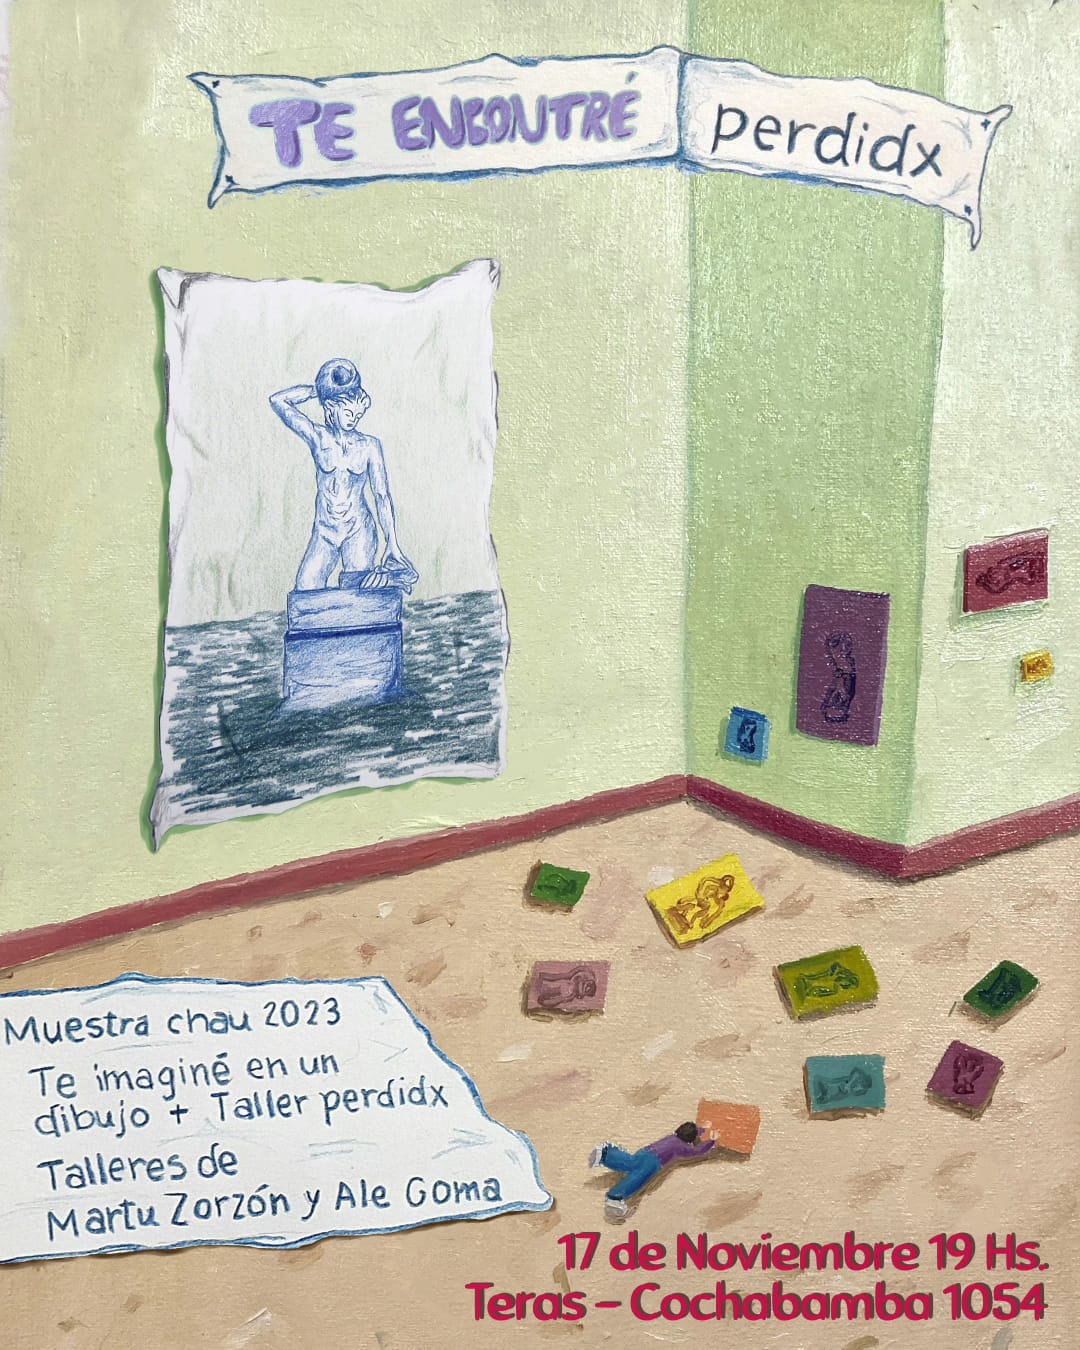 TE ENCONTRÉ perdidx
Muestra chau 2023
Te imaginé en un
dibujo + Taller perdidx
Talleres de
Martu Zorzón y Ale Goma
17 de Noviembre 19 Hs.
Teras – Cochabamba 1054